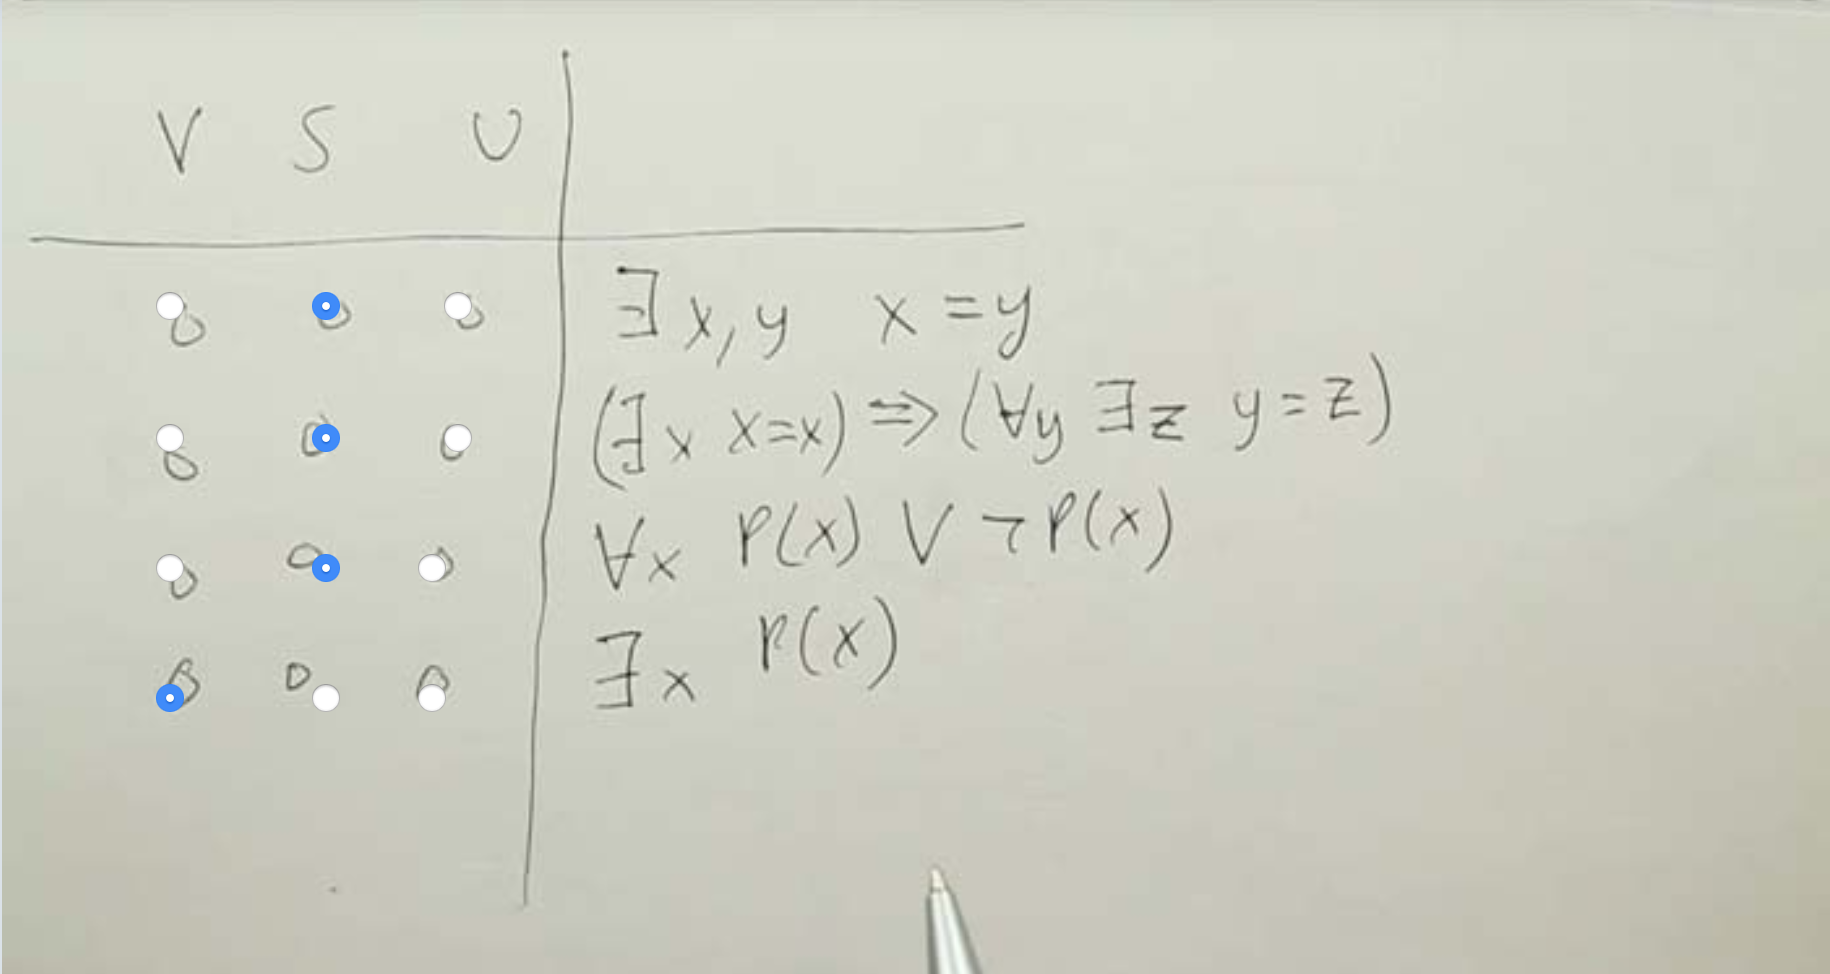 V S U
∃x,y x=y
(∃x x=x) ⇒ (∀y ∃z y=z)
∀x P(x) ∨ ¬P(x)
∃x P(x)